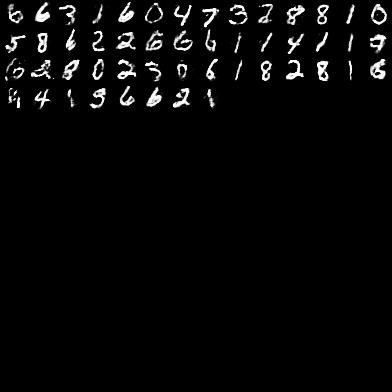 6 6 3 1 6 0 4 7 3 2 8 8 1 0
5 8 6 2 2 6 6 6 1 1 4 1 1 7
6 2 8 0 2 3 0 6 1 8 2 8 1 6
4 1 3 6 6 2 1